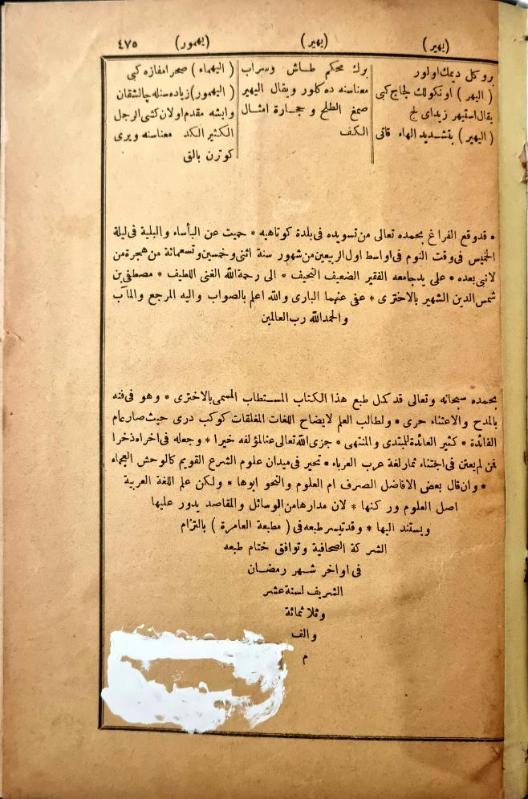 (يهير) (يهير) (يهمور) ٤٧٥
بروكل ديمك اولور
(اليهر) اونكولك لجاج كبى
يقال استيهر زيداى لج
(اليهير) بتشديد الهاء قاتى
برك محكم طاش وسراب
معناسنه ده كلور ويقال اليهير
صمغ الطلح وحجارة امثال
الكف
(اليهماء) صحرا مفازه كبى
(اليهمور) زياده سنله چالشقان
وايشه مقدم اولان كشى الرجل
الكثير الكد معناسنه ويرى
كوترن بالق
* قدوقع الفراغ بحمده تعالى من تسويده فى بلدة كوتاهيه * حميت عن البأساء والبلية فى ليلة
الخميس فى وقت النوم فى اواسط اول الربيعين من شهور سنة اثنى وخمسين وتسعمائة من هجرة من
لانبى بعده * على يدجامعه الفقير الضعيف النحيف * الى رحمة الله الغنى اللطيف * مصطفى بن
شمس الدين الشهير بالاخترى * عفى عنهما البارى والله اعلم بالصواب واليه المرجع والمآب
والحمدلله رب العالمين
بحمده سبحانه وتعالى قد كمل طبع هذا الكتاب المستطاب المسمى بالاخترى * وهو فى فنه
بالمدح والاعتناء حرى * ولطالب العلم لايضاح اللغات المغلقات كوكب درى حيث صار عام
الفائدة * كثير العائدة للمبتدى والمنتهى * جزى الله تعالى عنا لمؤلفه خيرا * وجعله فى اخراه ذخرا
فمن لم يعتن فى اجتناء ثمار لغة عرب العرباء * تحير فى ميدان علوم الشرع القويم كالوحش البهماء
* وان قال بعض الافاضل الصرف ام العلوم والنحو ابوها * ولكن علم اللغة العربية
اصل العلوم وركنها * لان مدارها من الوسائل والمقاصد يدور عليها
ويستند اليها * وقدتيسر طبعه فى (مطبعة العامرة) بالتزام
الشركة الصحافية وتوافق ختام طبعه
فى اواخر شهر رمضان
الشريف لسنة عشر
وثلاثمائة
والف
م